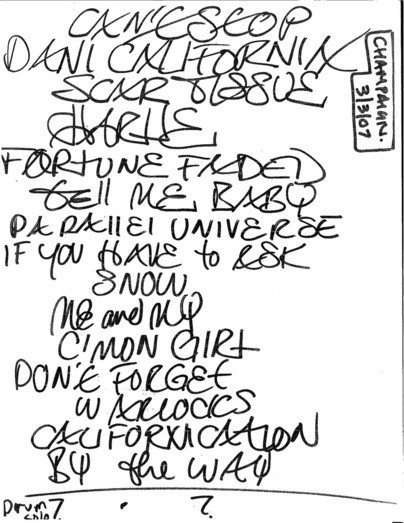 CAN'T STOP
DANI CALIFORNIA
CHAMPAIGN.
3/3/07
SCAR TISSUE
CHARLIE
FORTUNE FADED
TELL ME BABY
PARALLEL UNIVERSE
IF YOU HAVE to ASK
SNOW
ME and MY
C'MON GIRL
DON'T FORGET
WARLOCKS
CALIFORNICATION
BY the WAY
Drum ? . ?
solo